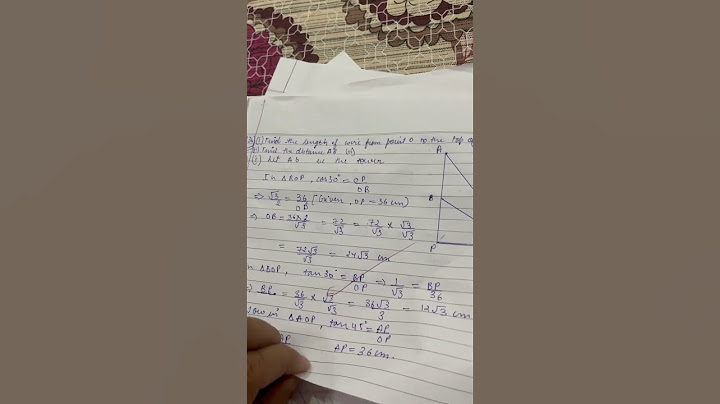 (i) Find the length of wire from point O to the top of
Find the distance AB (ii)
(i) Let AB be the tower
In ΔBOP, cos30° = OP/OB
⇒ √3/2 = 36/OB [Given, OP = 36 cm)
⇒ OB = 36×2/√3 = 72/√3 = 72/√3 × √3/√3
= 72√3/√3 = 24√3 cm
In ΔBOP, tan 30° = BP/OP ⇒ 1/√3 = BP/36
⇒ BP = 36/√3 × √3/√3 = 36√3/3 = 12√3 cm
Now in ΔAOP, tan 45° = AP/OP
AP
AP = 36 cm.
A
B
P